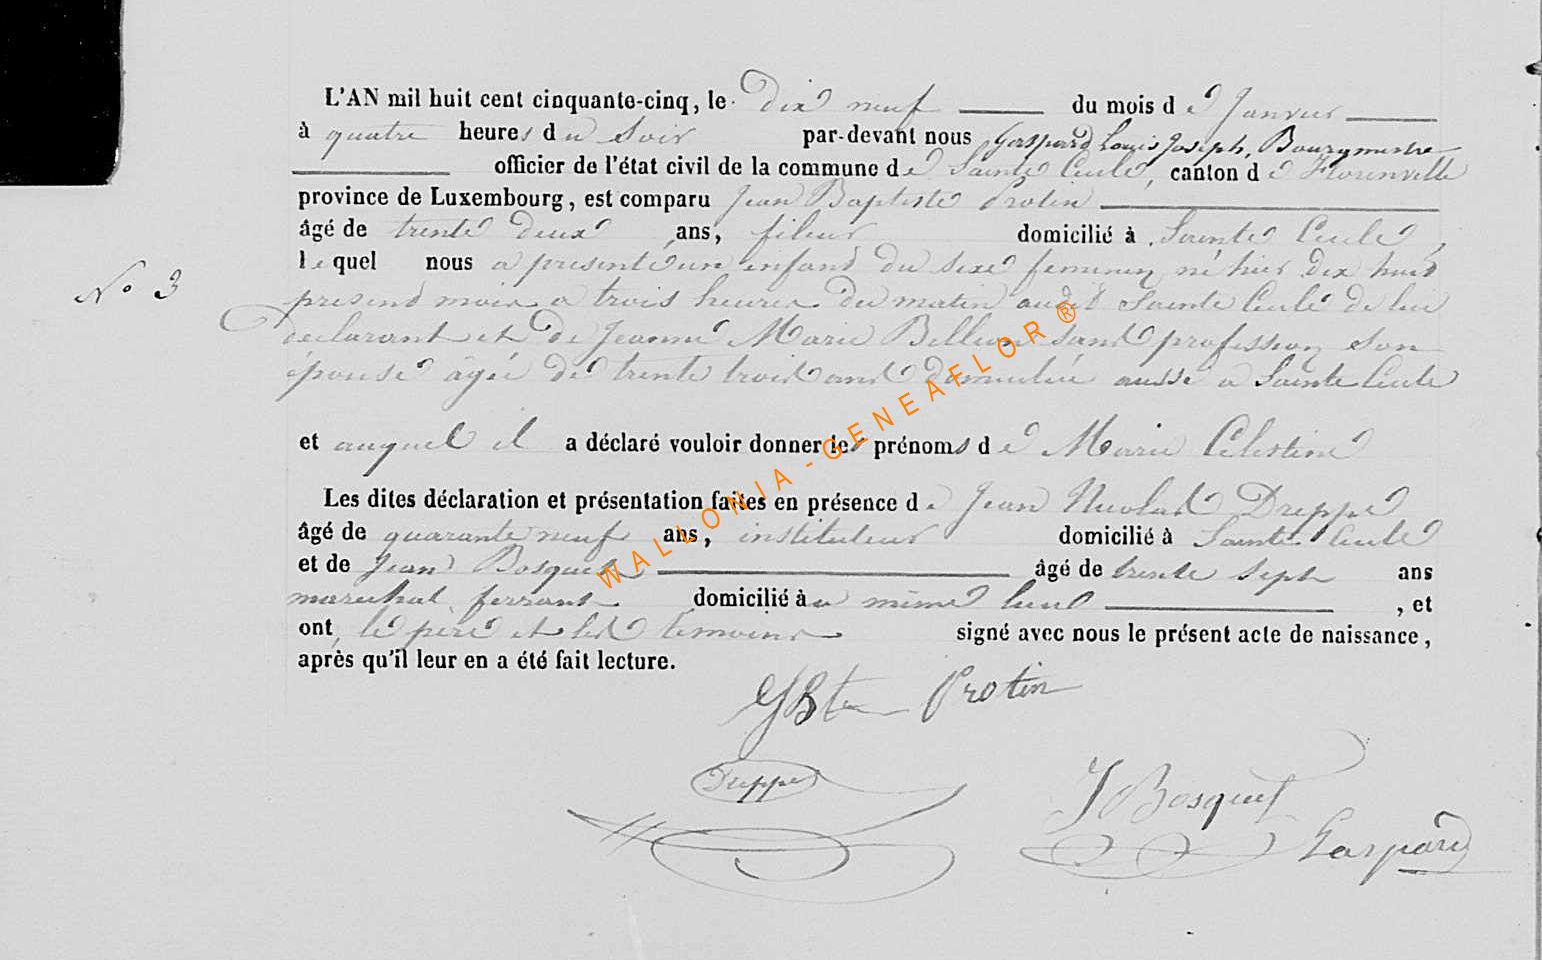 L'AN mil huit cent cinquante-cinq, le dix neuf du mois de Janvier
à quatre heures du soir par-devant nous Gaspard Louis Joseph, Bourgmestre
officier de l'état civil de la commune de Sainte Cecile, canton de Florenville
province de Luxembourg, est comparu Jean Baptiste Protin
âgé de trente deux ans, fileur domicilié à Sainte Cecile,
N° 3
lequel nous a présenté un enfant du sexe feminin né hier dix huit
present mois a trois heures du matin audit Sainte Cecile de lui
declarant et de Jeanne Marie sans profession son
épouse âgée de trente trois ans domiciliée aussi a Sainte Cecile
et auquel il a déclaré vouloir donner les prénoms de Marie Célestine
Les dites déclaration et présentation faites en présence de Jean Nicolas Dreppe
âgé de quarante neuf ans, instituteur domicilié à Sainte Cecile
et de Jean Bosquet âgé de trente sept ans
marechal ferrant domicilié à même lieu, et
ont, le père et les temoins signé avec nous le présent acte de naissance,
après qu'il leur en a été fait lecture.
Protin
Dreppe
J Bosquet
Gaspard
WALLONIA - GENEAFLOR ®